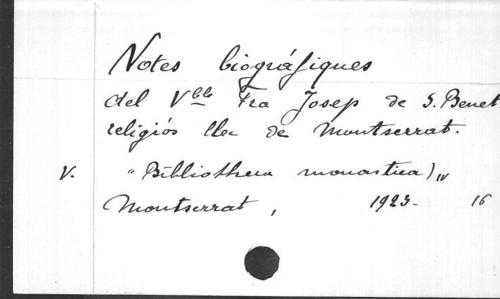 Notes biográfiques
del Vble Fra Josep de S. Benet
religiós llec de Montserrat.
V. "Bibliotheca monastica) IV
Montserrat, 1923. 16